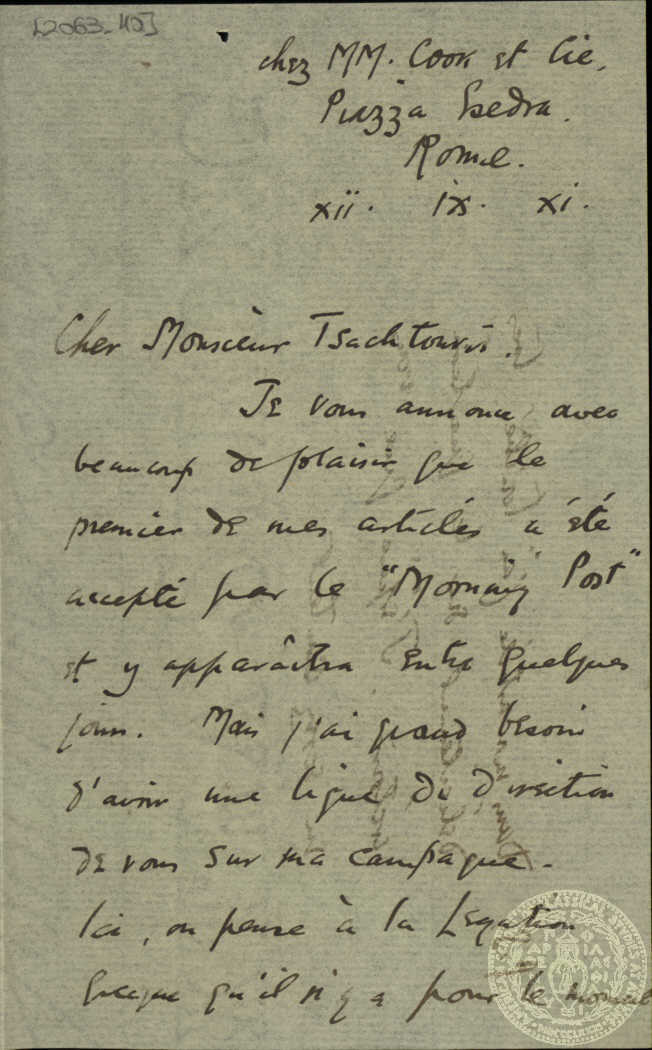 chez MM. Cook et Cie,
Piazza Esedra.
Rome.
xii. ix. xi.
Cher Monsieur Tsachtouris.
Je vous annonce avec
beaucoup de plaisir que le
premier de mes articles a été
accepté par le "Morning Post"
et y apparaîtra entre quelques
jours. Mais j'ai grand besoin
d'avoir une ligne de direction
de vous sur ma campagne.
Ici, on pense à la Légation
grecque qu'il n'y a pour le moment